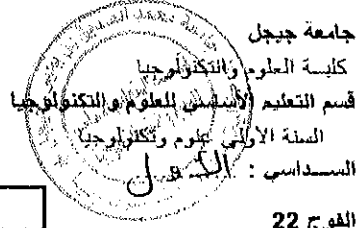 جامعة جيجل
كلية العلوم والتكنولوجيا
قسم التعليم الأساسي للعلوم والتكنولوجيا
السنة الأولى علوم وتكنولوجيا
السداسي : الأول
الفوج 22